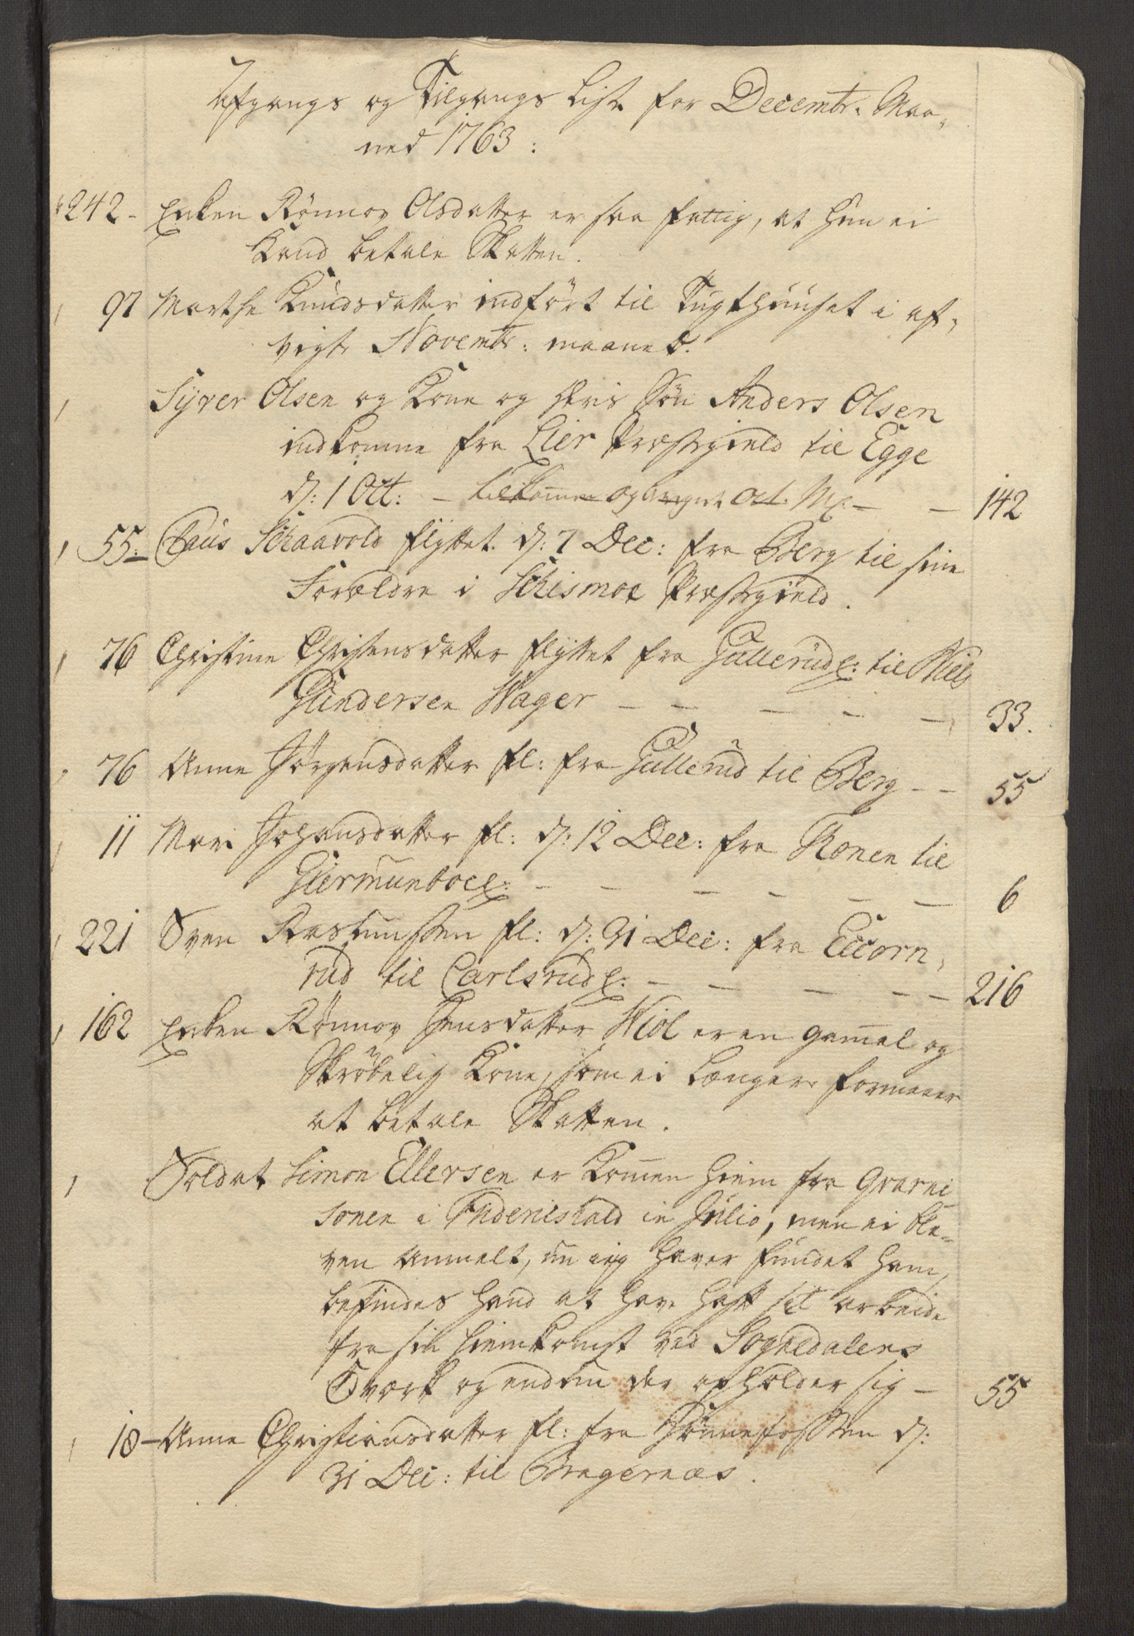 Afgangs og Tilgangs Liste for Decembr. Maa-
ned 1763:
242 - Enken Rønnov Olsdatter er saa fattig, at hun ei
Kand betale Skatten.
97 Marthe Knudsdatter indført til Tugthuuset i af-
vigte Novembr: maaned.
Syver Olsen og Kone og Søn Anders Olsen
indkomne fra Lier Præstegield til Egge
d: 1 Oct: - og Oct. - - 142
55. Paus Schaavold flyttet d: 7 Dec: fra Berg til sine
Forældre i Schismoe Præstegield.
76 Christine Christensdatter flyttet fra Gullerud: til Niels
Gundersen Hager - - - - - 33.
76 Anne Jørgensdatter fl: fra Gullerud til Berg - - 55
11 Mari Johansdatter fl: d: 12 Dec: fra Ronen til
Giermundboe: - - - - - - 6
221 Sven Rasmussen fl: d: 31 Dec: fra Eccorn-
rud til Carlsrud: - - - - - 216
162 Enken Rønnov Jensdatter Hiol er en gammel og
Skrøbelig Kone, som ei Længere formaaer
at betale Skatten.
Soldat Simon Ellersen er Kommen hiem fra Gvarni
sonen i Friderichshald in Julio, men ei ble-
ven Anmelt, nu ieg haver fundet ham,
befindes hand at have haft sit arbeide
fra sin hiemkomst ved Soghedalens
Qværk og endnu der opholder sig - 55
18 - Anne Christiansdatter fl: fra Hønnefossen d:
31 Dec: til Bragernæs.